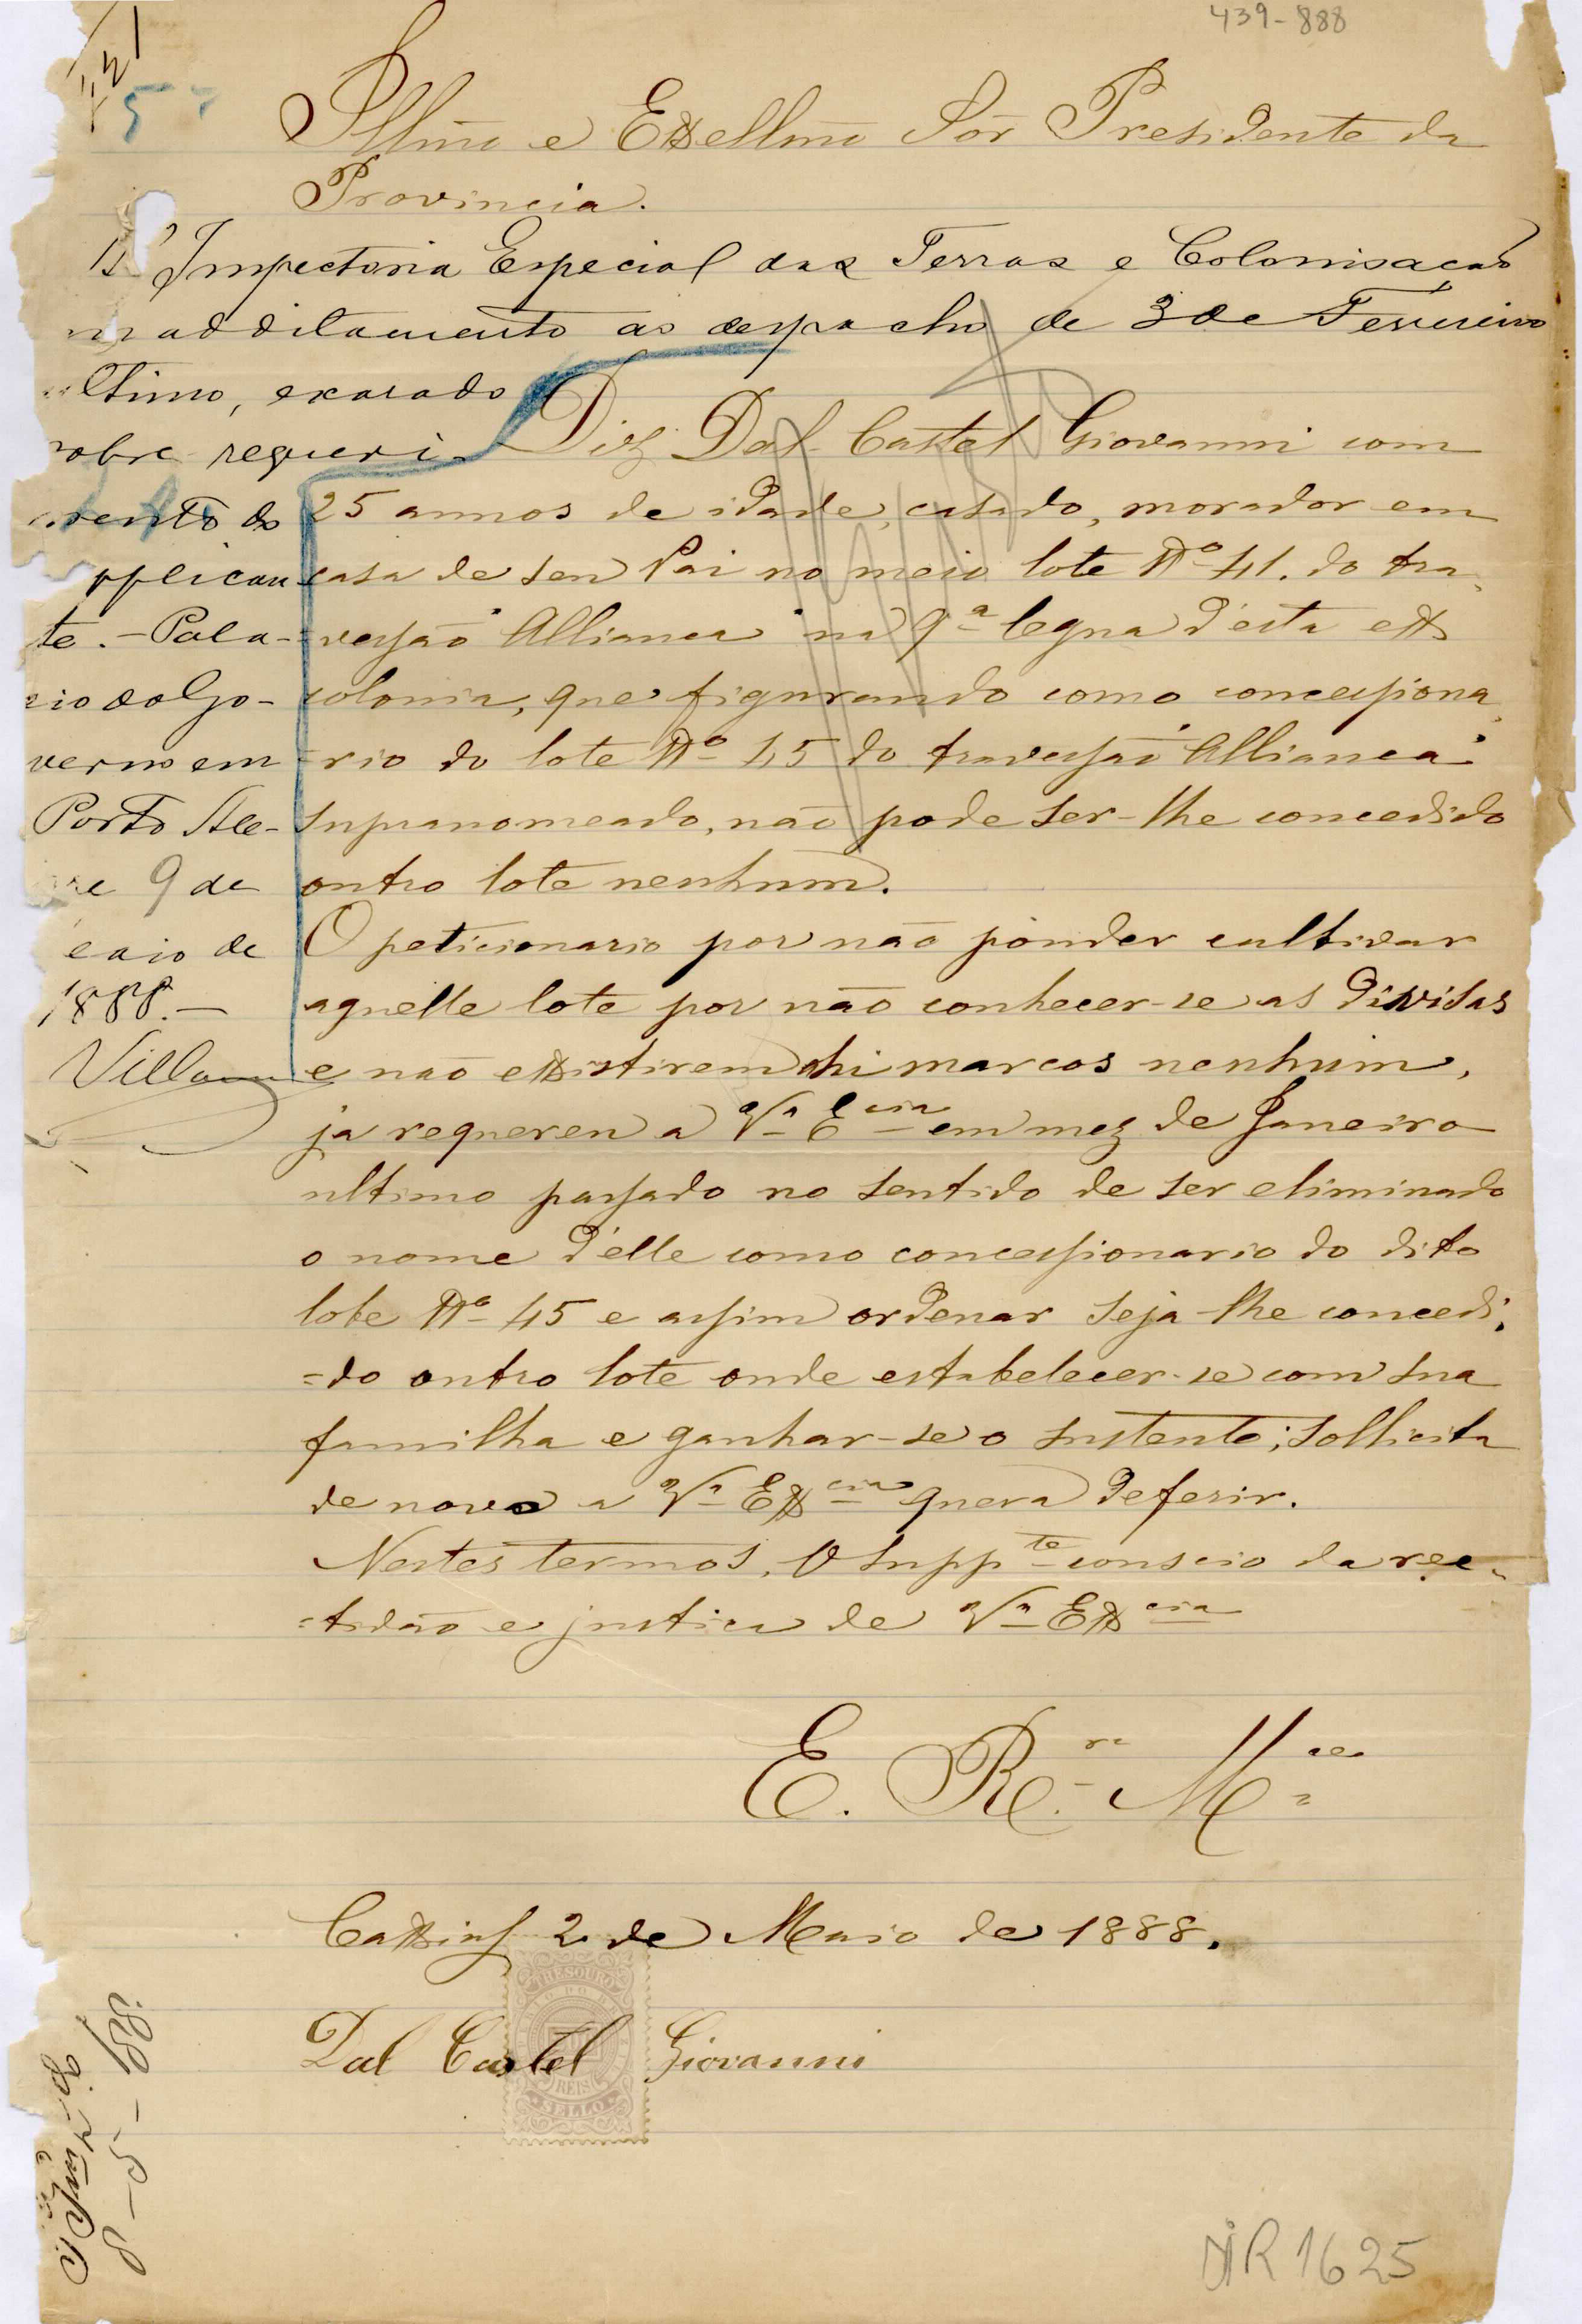 439-888
421
5
Illmo e Exellmo Sõr Presidente da
Provincia.
Á Inspectoria Especial das Terras e Colonisação
em additamento ao despacho de 3 de Fevereiro
ultimo, exarado
sobre requeri-
mento do
supplican
te. - Pala-
cio do Go-
verno em
Porto Ale-
gre 9 de
Maio de
1888. -
Diz Dal Castel Giovanni com
25 annos de idade, casado, morador em
casa de seu Pai no meio lote Nº 41. do tra-
=vessão "Alliança" na 9ª legua d'esta ex
colonia, que figurando como concessiona-
=rio do lote Nº 45 do travessão "Alliança"
supranomeado, não pode ser-lhe concedido
outro lote nenhum.
O peticionario por não ponder cultivar
aquelle lote por não conhecer-se as divisas
e não existirem ahi marcos nenhum,
ja requereu a Vª Ecia em mez de Janeiro
ultimo passado no sentido de ser eliminado
o nome d'elle como concessionario do dito
lote Nº 45 e assim ordenar seja-lhe concedi-
=do outro lote onde estabelecer-se com sua
familha e ganhar-se o sustento; sollicita
de novo a Vª Excia quera deferir.
Nestes termos, O Suppte conscio da rec-
=tidão e justica de Vª Excia
E. Rª Mce
Caxias 2 de Maio de 1888.
Dal Castel Giovanni
THESOURO
REIS
SELLO
8-5-88
NR 1625